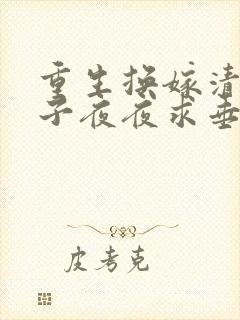 重生换嫁清
子夜夜求垂
皮考克